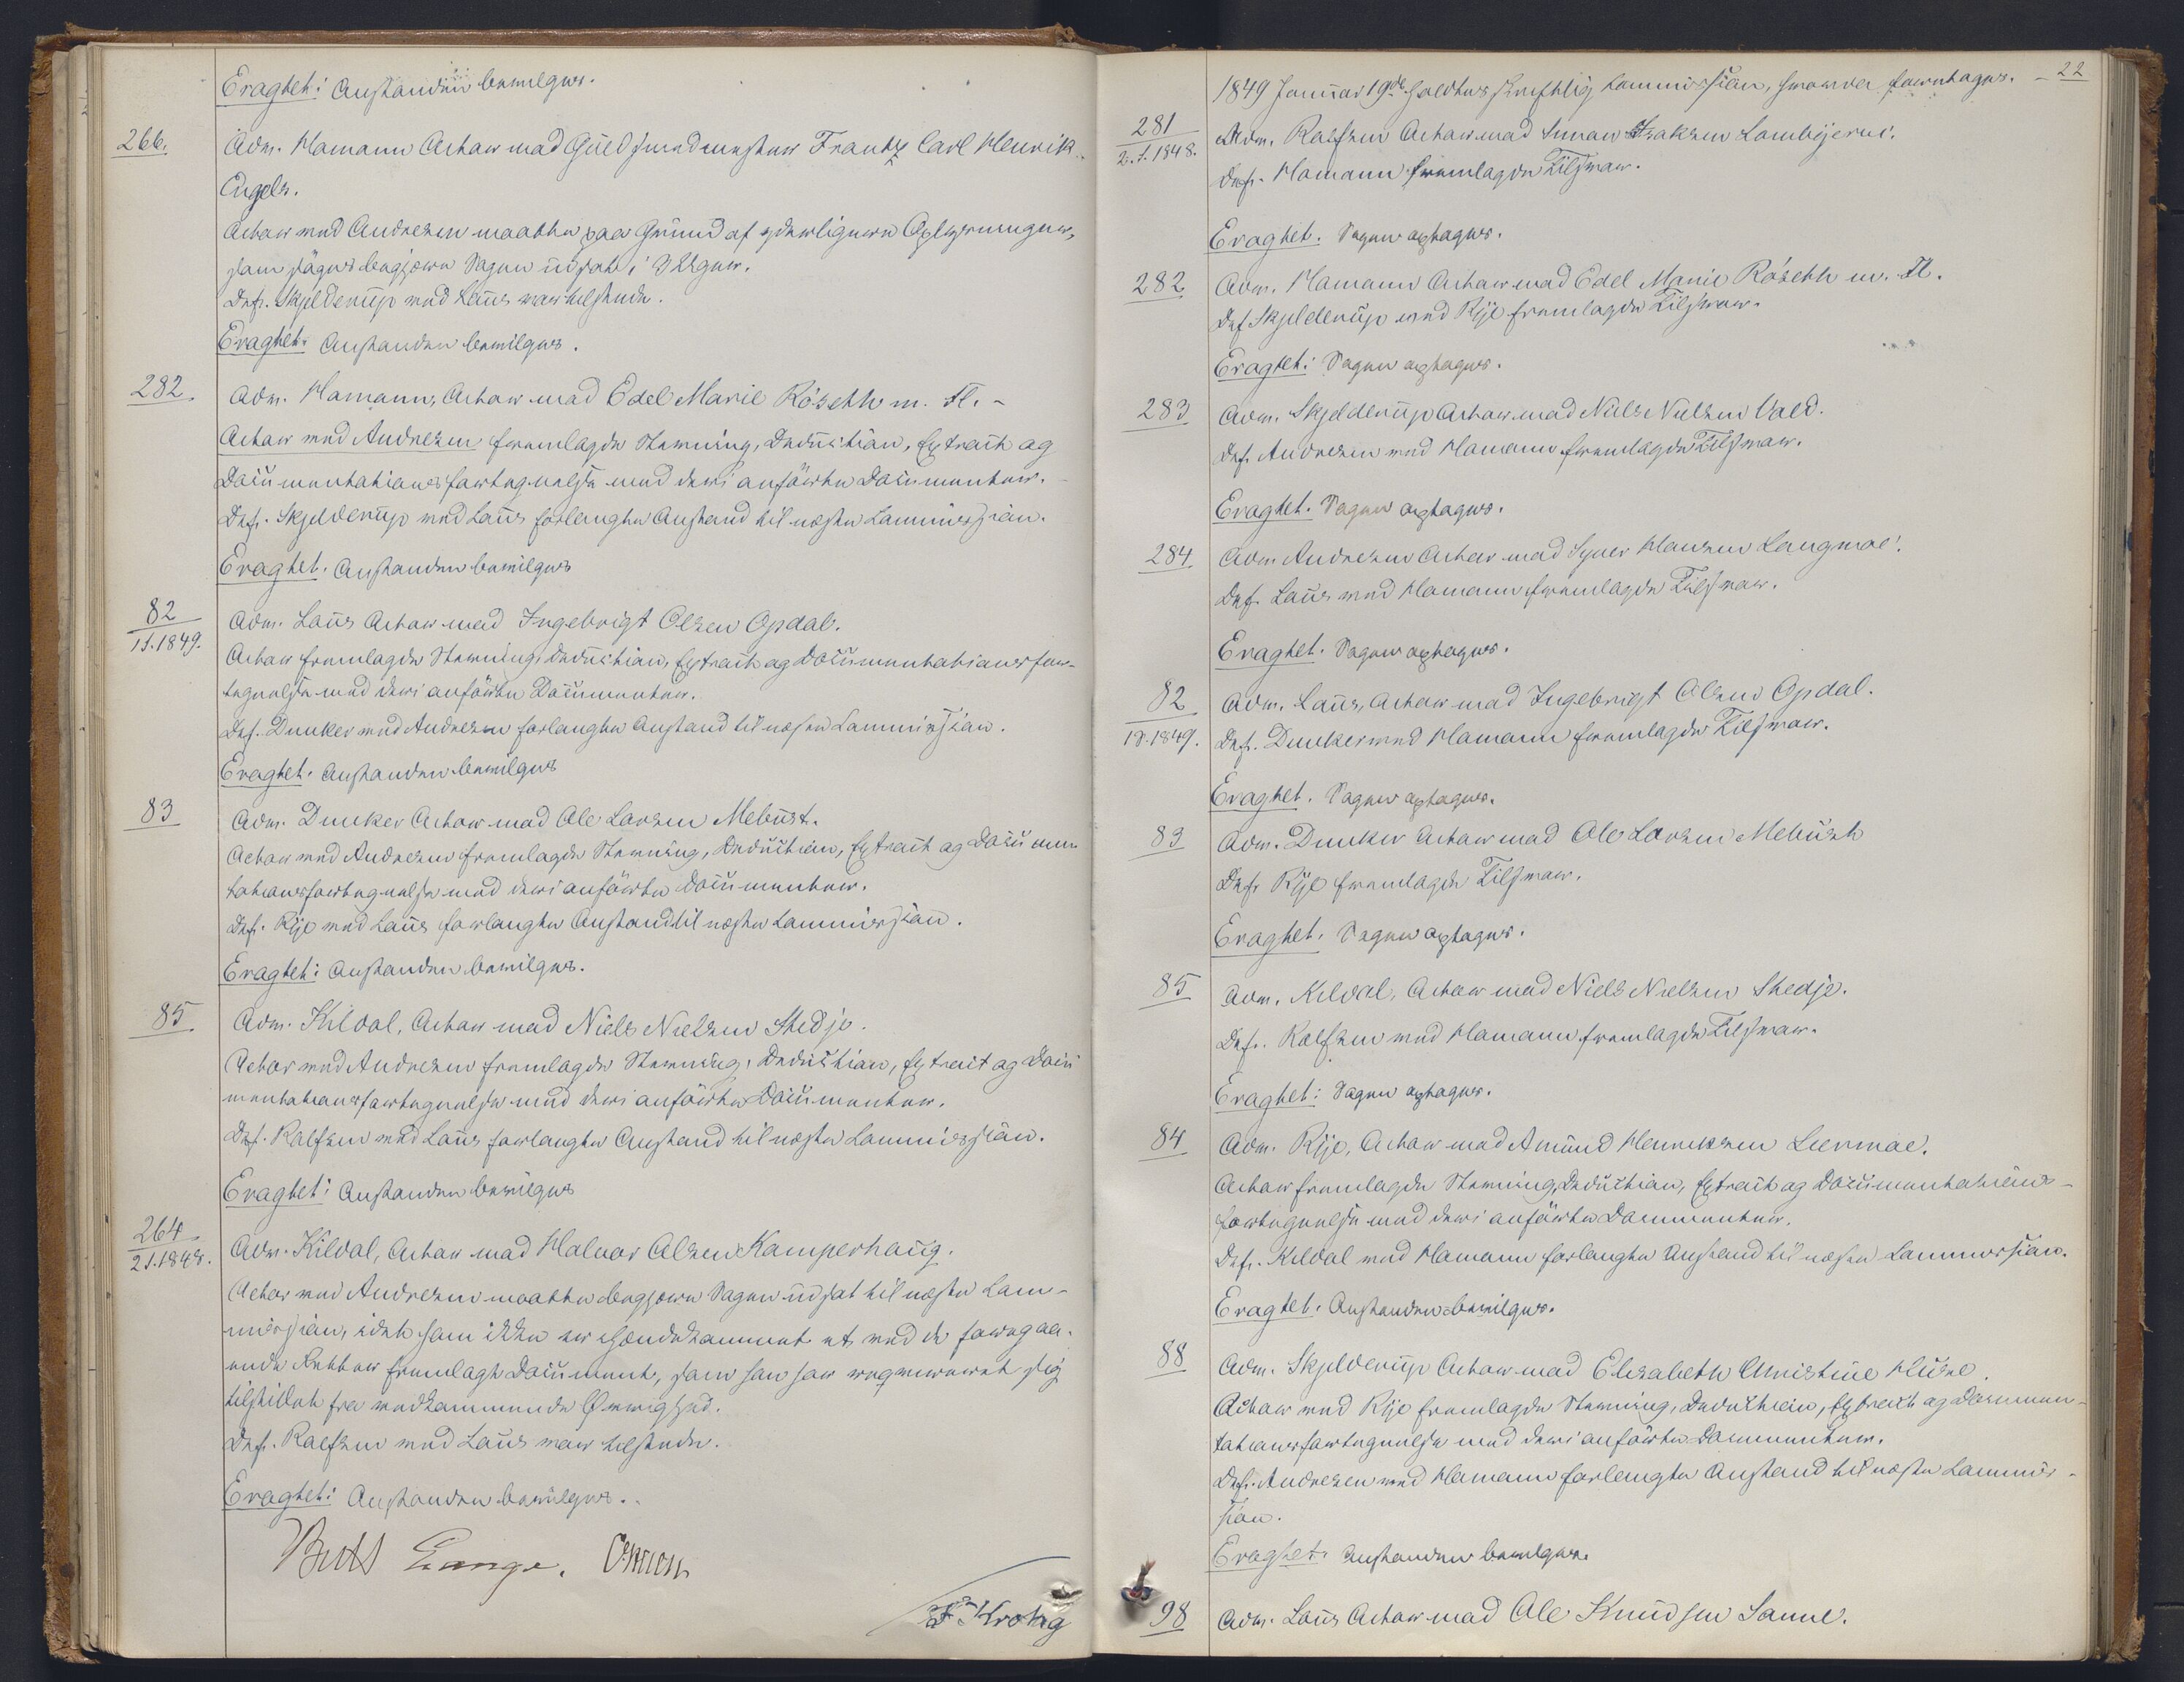 Eragtet: Anstanden bevilges.
266.
Adv. Hamann Actor mod Guldsmedmester Frantz Carl Henrik
Engels.
Actor med Andresen maatte paa Grund af yderligere Oplysninger,
som søges begjere Sagen udsat i 3 Uger.
Def. Skjelderup med Laus var tilstede.
Eragtet. Anstanden bevilges.
282.
Adv. Hamann, Actor mod Edel Marie Röseth m. Fl. -
Actor med Andresen fremlagde Stævning, Deduction, Extract og
Documentationsfortegnelse med deri anförte Documenter. -
Def. Skjelderup med Laus forlangte Anstand til næste Commission.
Eragtet. Anstanden bevilges
82
1 S. 1849.
Adv. Laus Actor mod Ingebrigt Olsen Opdal.
Actor fremlagde Stævning, Deduction, Extract og Documentationsfor-
tegnelse med deri anförte Documenter.
Def. Dunker med Andresen forlangte Anstand til næste Commission.
Eragtet. Anstanden bevilges
83
Adv. Dunker Actor mod Ole Larsen Mebust.
Actor med Andresen fremlagde Stævning, Deduction, Extract og Documen-
tationsfortegnelse med deri anförte Documenter.
Def. Rije med Laus forlangte Anstand til næste Commission.
Eragtet: Anstanden bevilges.
85
Adv. Kildal, Actor mod Niels Nielsen Stedje.
Actor med Andresen fremlagde Stævning, Deduction, Extract og Docu
mentationsfortegnelse med deri anförte Documenter.
Def. Rolfsen med Laus forlangte Anstand til næste Commission.
Eragtet: Anstanden bevilges
264
2 S. 1848.
Adv. Kildal, Actor mod Halvor Olsen Kamperhaug.
Actor med Andresen maatte begjere Sagen udsat til næste Com-
mission, idet som ikke er ihændekommet et ved de foregaa-
ende Retter fremlagt Document, som han har reqvireret sig
tilstillet fra vedkommende Øvrighed.
Def. Rolfsen med Laus var tilstede.
Eragtet: Anstanden bevilges.
Lange.
F Krohg
22
1849 Januar 19de holdtes skriftlig Commission, hvorda foretoges.
281
2. S. 1848.
Adv. Rolfsen Actor mod Simon Isaksen Lombjerui.
Def. Hamann fremlagde Tilsvar.
Eragtet. Sagen optages.
282
Adv. Hamann Actor mod Edel Marie Röseth m. Fl.
Def Skjelderup med Rije fremlagde Tilsvar.
Eragtet: Sagen optages.
283
Adv. Skjelderup Actor mod Niels Nielsen Vald.
Def. Andresen med Hamann fremlagde Tilsvar.
Eragtet. Sagen optages.
284
Adv. Andresen Actor mod Syver Hansen Langmoe.
Def. Laus med Hamann fremlagde Tilsvar.
Eragtet. Sagen optages.
82
1 S. 1849.
Adv. Laus, Actor mod Ingebrigt Olsen Opdal.
Def. Dunker med Hamann fremlagde Tilsvar.
Eragtet. Sagen optages.
83
Adv. Dunker Actor mod Ole Larsen Mebust
Def. Rije fremlagde Tilsvar.
Eragtet. Sagen optages.
85
Adv. Kildal, Actor mod Niels Nielsen Stedje.
Def. Rolfsen med Hamann fremlagde Tilsvar.
Eragtet: Sagen optages.
84
Adv. Rije, Actor mod Amund Henriksen Leermoe.
Actor fremlagde Stævning, Deduction, Extract og Documentations-
fortegnelse med deri anförte Documenter.
Def. Kildal med Hamann forlangte Anstand til næste Commission.
Eragtet. Anstanden bevilges.
88
Adv. Skjelderup Actor mod Elisabeth Christine Kuse.
Actor med Rije fremlagde Stævning, Deduction, Extract og Documen-
tationsfortegnelse med deri anförte Documenter.
Def. Andresen med Hamann forlangte Anstand til næste Commis-
sion.
Eragtet. Anstanden bevilges.
98
Adv. Laus Actor mod Ole Knudsen Sanne.